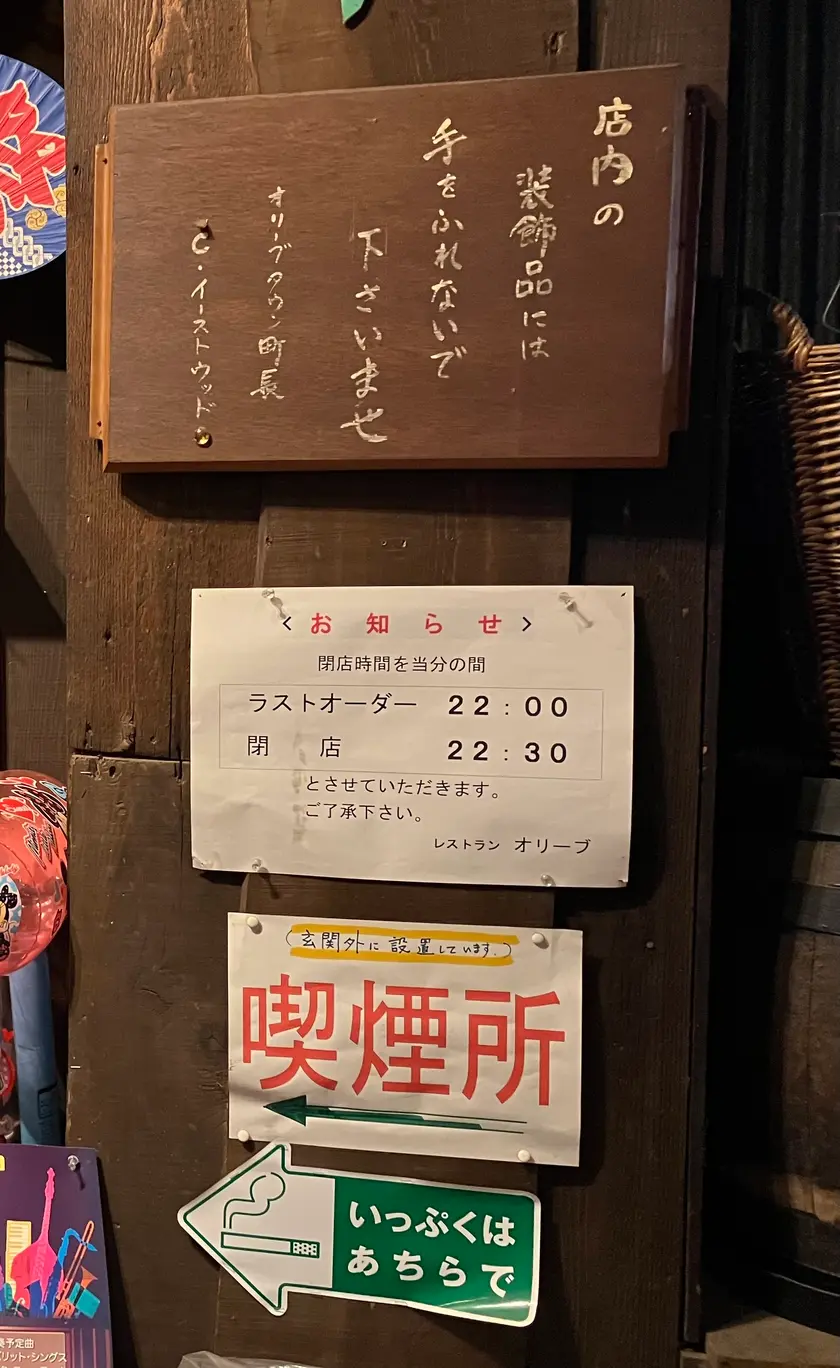 店内の
装飾品には
手をふれないで
下さいませ
オリーブタウン町長
C・イーストウッド
<お知らせ>
閉店時間を当分の間
ラストオーダー 22:00
閉 店 22:30
とさせていただきます。
ご了承下さい。
レストラン オリーブ
(玄関外に設置しています.)
喫煙所
いっぷくは
あちらで
奏予定曲